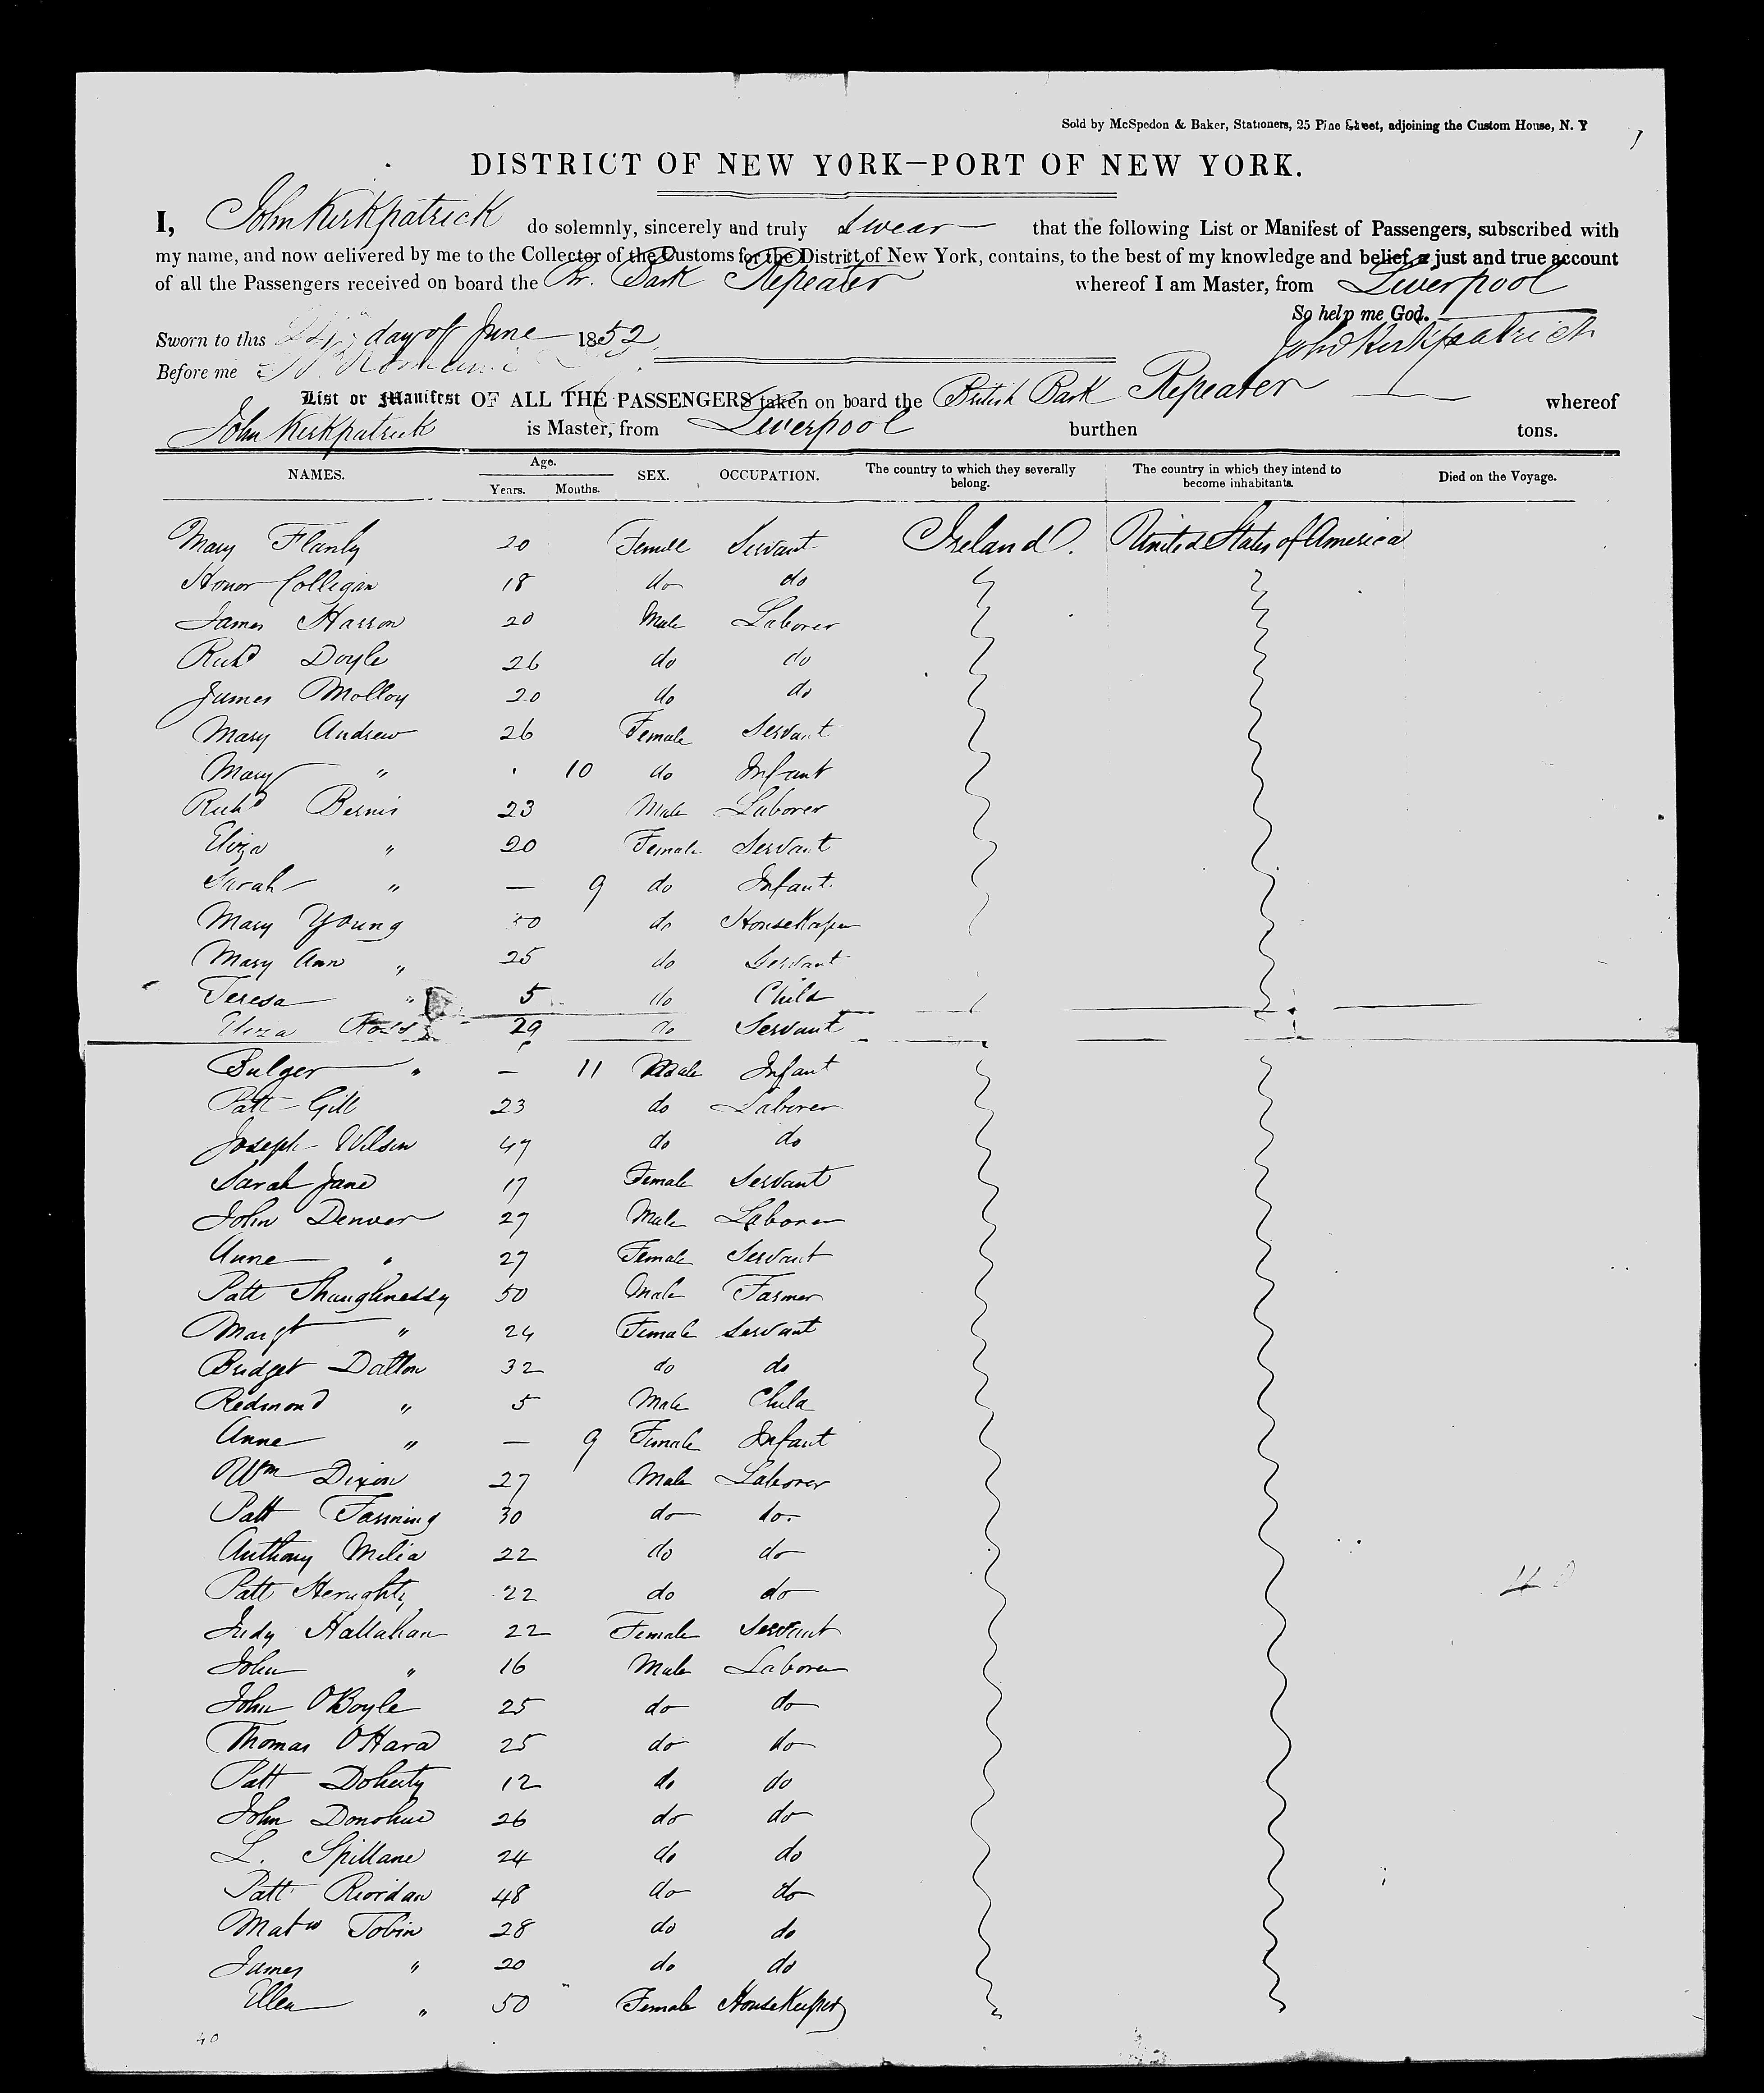 Sold by McSpedon & Baker, Stationers, 25 Pine Street, adjoining the Custom House, N. Y
DISTRICT OF NEW YORK—PORT OF NEW YORK.
I, John Kirkpatrick do solemnly, sincerely and truly swear that the following List or Manifest of Passengers, subscribed with
my name, and now delivered by me to the Collector of the Customs for the District of New York, contains, to the best of my knowledge and belief, a just and true account
of all the Passengers received on board the Br. Bark Repeater whereof I am Master, from Liverpool
So help me God.
Sworn to this day of June 1852 John Kirkpatrick
Before me
List or Manifest OF ALL THE PASSENGERS taken on board the British Bark Repeater whereof
John Kirkpatrick is Master, from Liverpool burthen tons.
NAMES. Age. Years. Months. SEX. OCCUPATION. The country to which they severally belong. The country in which they intend to become inhabitants. Died on the Voyage.
Mary Flanly 20 Femile Servant Ireland. United States of America
Honor Colligan 18 do do
James Harron 20 Male Laborer
Richd Doyle 26 do do
James Molloy 20 do do
Mary Andrew 26 Female Servant
Mary " 10 do Infant
Richd Bernis 23 Male Laborer
Eliza " 20 Female Servant
Sarah " — 9 do Infant
Mary Young do Housekeeper
Mary Ann " 25 do Servant
Teresa " 5 do Child
Eliza Ross 29 do Servant
Bulger " — 11 Male Infant
Patt Gill 23 do Laborer
Joseph Wilson 47 do do
Sarah Jane 17 Female Servant
John Denver 27 Male Laborer
Anne " 27 Female Servant
Patt Shaughnessy 50 Male Farmer
Margt " 24 Female Servant
Bridget Dalton 32 do do
Redmond " 5 Male Child
Anne " — 9 Female Infant
Wm Dixon 27 Male Laborer
Patt Fanning 30 do do.
Anthony Melia 22 do do
Patt Heraghty 22 do do
Judy Hallahan 22 Female Servant
John " 16 Male Laborer
John O'Boyle 25 do do
Thomas O'Hara 25 do do
Patt Doherty 12 do do
John Donohue 26 do do
L. Spillane 24 do do
Patt Riordan 48 do do
Matw Tobin 28 do do
James " 20 do do
Ellen " 50 Female HouseKeeper
40